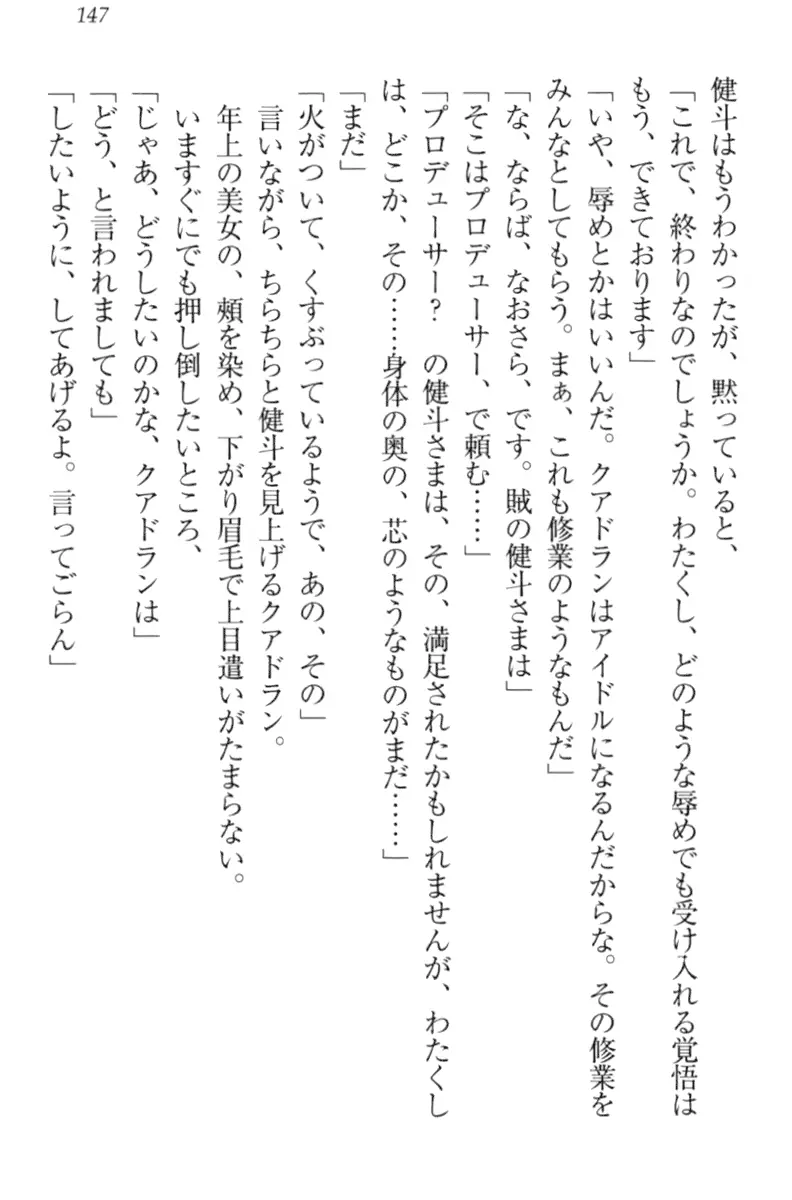 147
健斗はもうわかったが、黙っていると、
「これで、終わりなのでしょうか。わたくし、どのような辱めでも受け入れる覚悟は
もう、できております」
「いや、辱めとかはいいんだ。クアドランはアイドルになるんだからな。その修業を
みんなとしてもらう。まぁ、これも修業のようなもんだ」
「な、ならば、なおさら、です。賊の健斗さまは」
「そこはプロデューサー、で頼む……」
「プロデューサー？　の健斗さまは、その、満足されたかもしれませんが、わたくし
は、どこか、その……身体の奥の、芯のようなものがまだ……」
「まだ」
「火がついて、くすぶっているようで、あの、その」
言いながら、ちらちらと健斗を見上げるクアドラン。
年上の美女の、頰を染め、下がり眉毛で上目遣いがたまらない。
いますぐにでも押し倒したいところ、
「じゃあ、どうしたいのかな、クアドランは」
「どう、と言われましても」
「したいように、してあげるよ。言ってごらん」